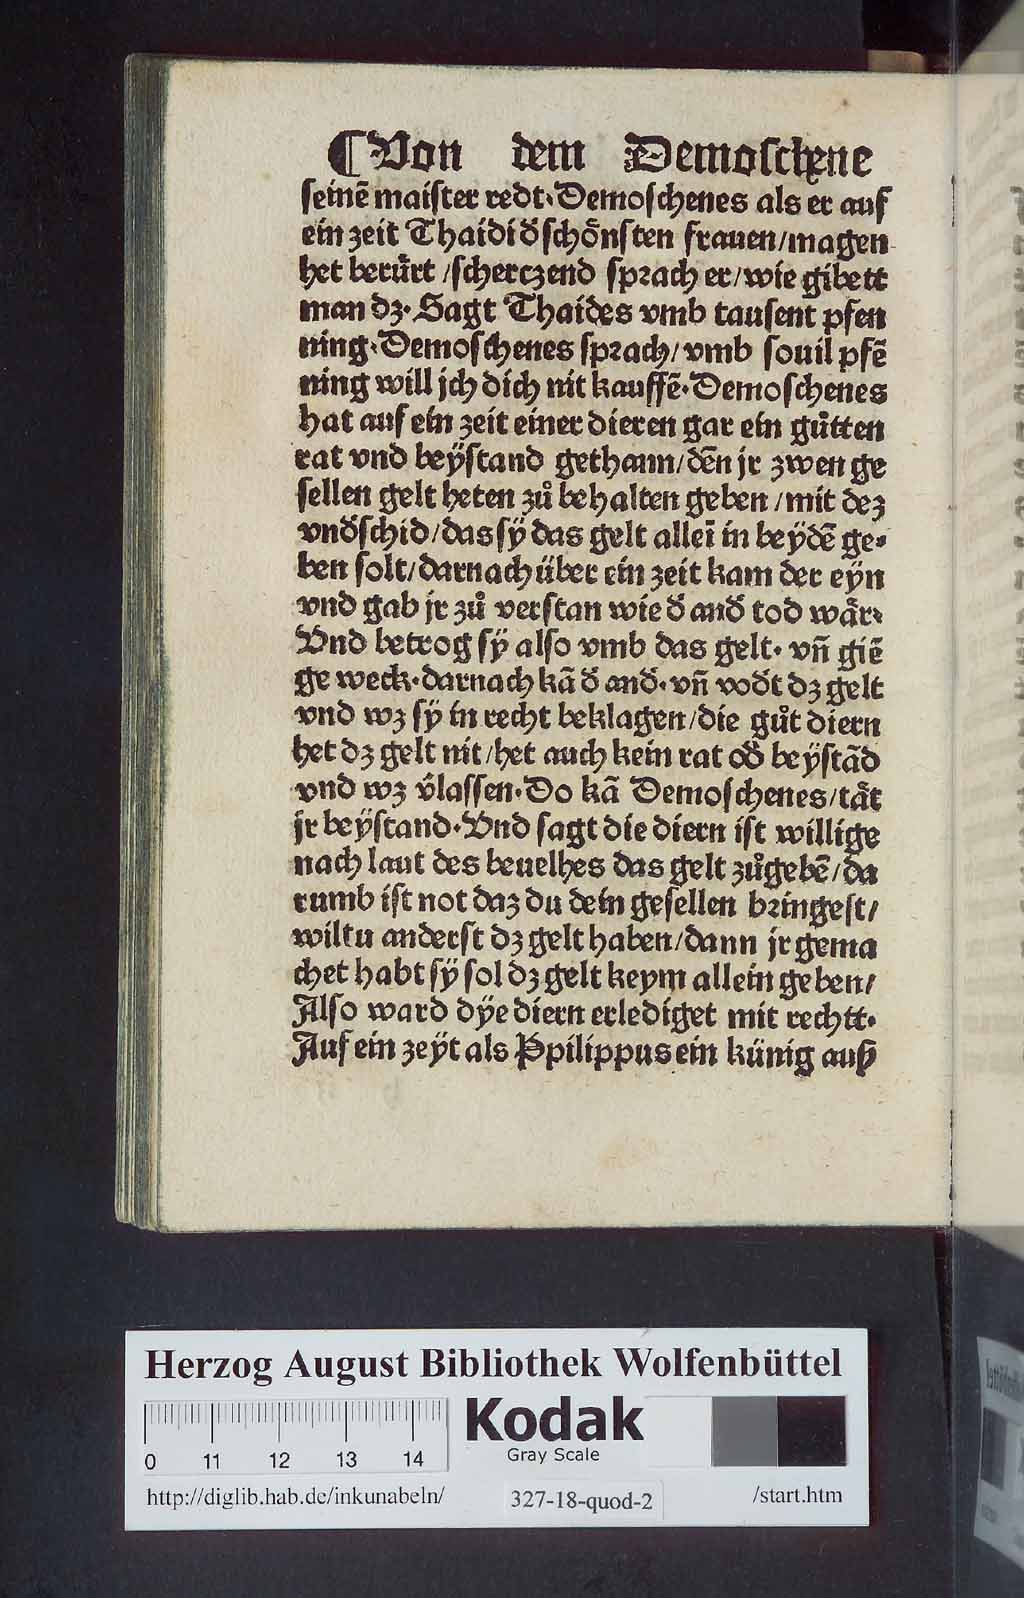 ⸿Von dem Demoschene
seinē maister redt. Demoschenes als er auf
ein zeit Thaidi d̕ schoͤnsten frauen/magen
het beruͤrt /scherczend sprach er/wie gibett
man dz. Sagt Thaides vmb tausent pfen
ning. Demoschenes sprach/ vmb souil pfē
ning will jch dich nit kauffē. Demoschenes
hat auf ein zeit einer dieren gar ein guͦtten
rat vnd beÿstand gethann/dēn jr zwen ge
sellen gelt heten zuͦ behalten geben /mit dez
vnd̕schid/das sÿ das gelt alleī in beÿdē ge⸗
ben solt/darnach über ein zeit kam der eÿn
vnd gab jr zuͦ verstan wie d̕ and̕ tod waͤr.
Vnd betrog sÿ also vmb das gelt. vn̄ giē
ge weck. darnach kā d̕ and̕. vn̄ vod̕t dz gelt
vnd wz sÿ in recht beklagen/die guͦt diern
het dz gelt nit/het auch kein rat od̕ beÿstād
vnd wz v̕lassen. Do kā Demoschenes/taͤt
jr beÿstand. Vnd sagt die diern ist willige
nach laut des beuelhes das gelt zuͦgebē/da
rumb ist not daz du dein gesellen bringest/
wiltu anderst dz gelt haben/dann jr gema
chet habt sÿ sol dz gelt keym allein geben/
Also ward dÿe diern erlediget mit rechtt.
Auf ein zeÿt als Ppilippus ein künig auß
Herzog August Bibliothek Wolfenbüttel
Kodak
Gray Scale
0 11 12 13 14
http://diglib.hab.de/inkunabeln/
327-18-quod-2
/start.htm